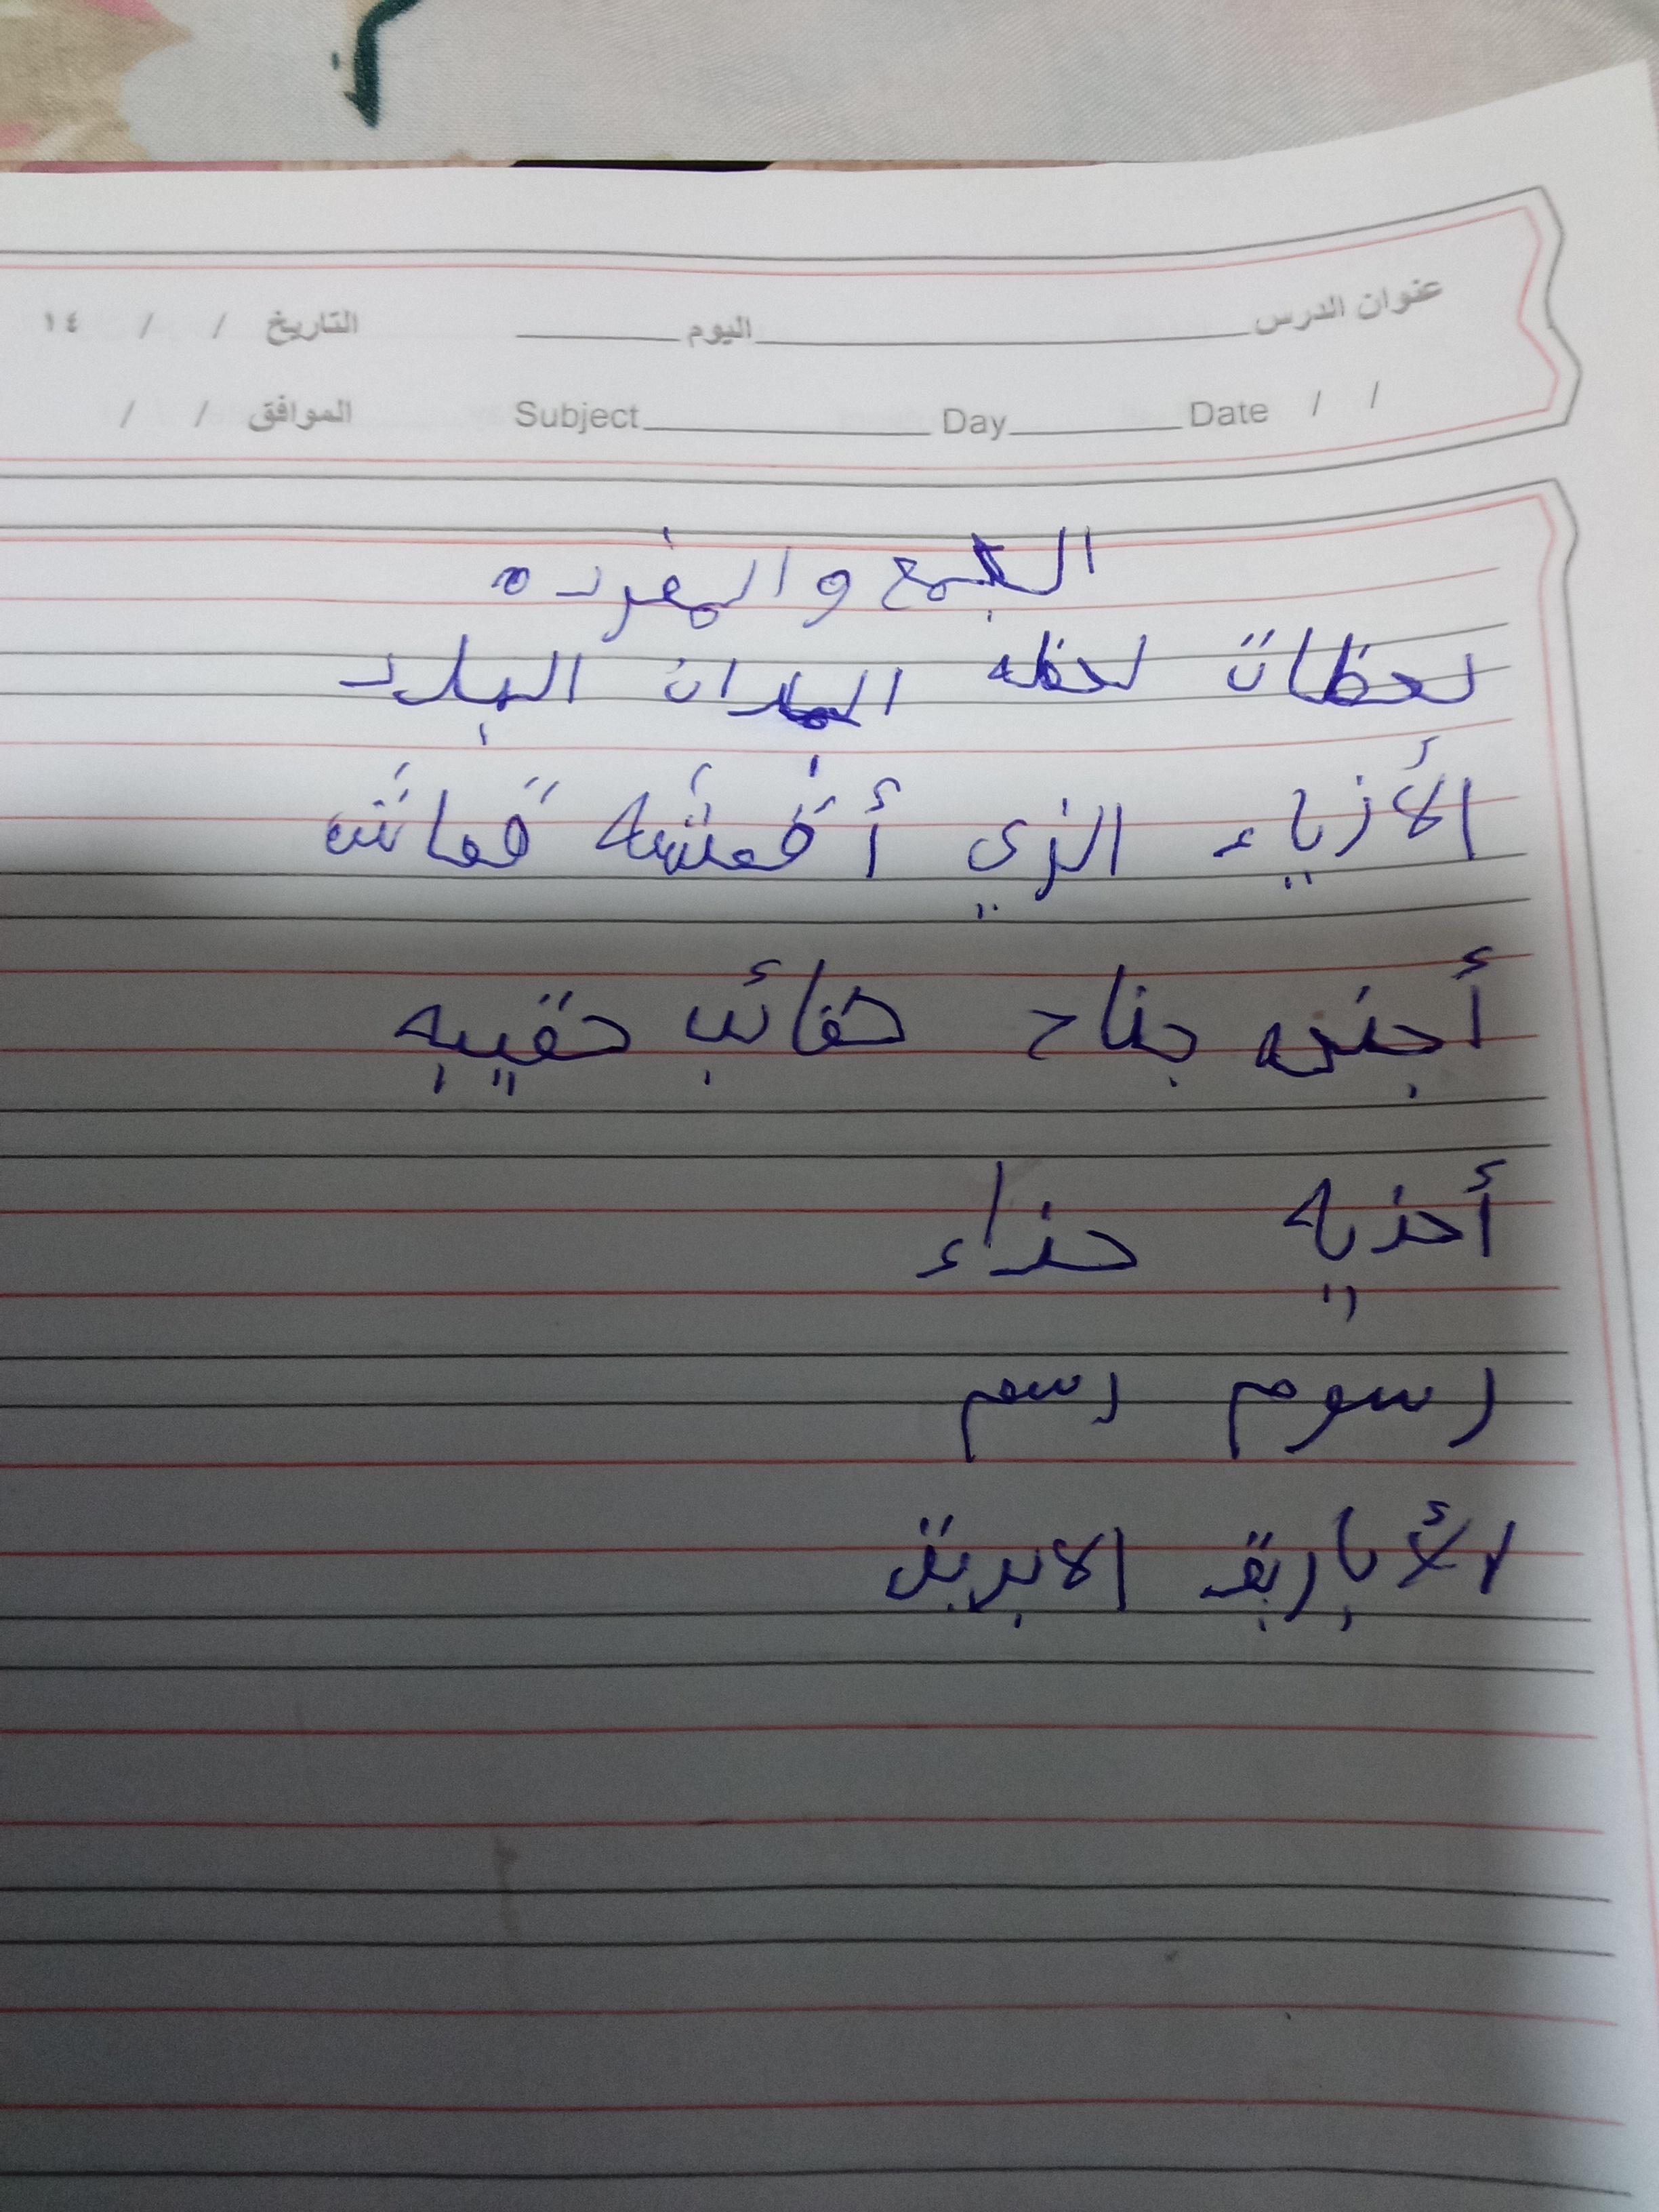 عنوان الدرس اليوم التاريخ / / ١٤
Subject Day Date / / الموافق / /
الجمع والمفرده
لحظات لحظه البلدان البلد
الأزياء الزي أقمشه قماش
أجنحه جناح حقائب حقيبه
أحذيه حذاء
رسوم رسم
الأباريق الابريق